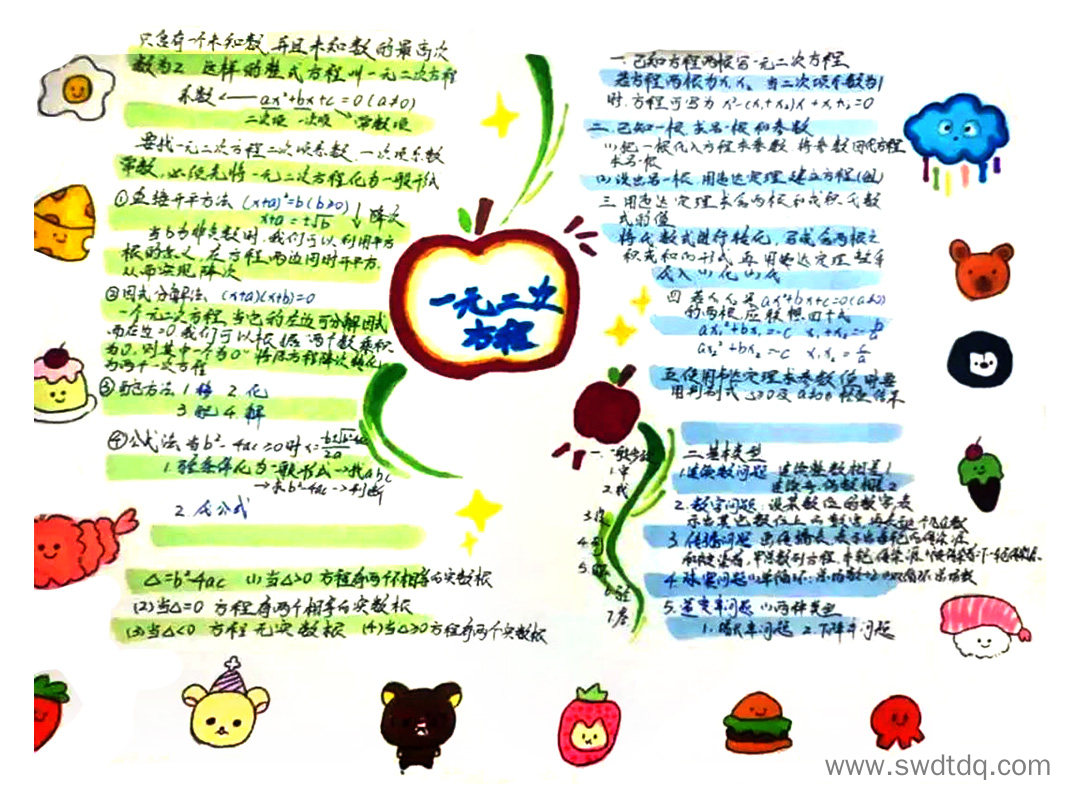 只含有一个未知数,并且未知数的最高次
数为2 这样的整式方程叫一元二次方程
系数 ← ax²+bx+c=0(a≠0)
二次项 一次项 常数项
要找一元二次方程二次项系数、一次项系数
常数,必须先将一元二次方程化为一般形式
①直接开平方法 (x+a)²=b(b≥0)
x+a=±√b ↓降次
当b为非负数时,我们可以利用平方
根的意义,在方程两边同时开平方,
从而实现降次
②因式分解法 (x+a)(x+b)=0
一个一元二次方程,当它的左边可分解因式
而右边=0 我们可以根据"两个数乘积
为0,则其中一个为0"将原方程降次转化
为两个一次方程
③配方法 1移 2.化
3配 4.解
④公式法 当b²-4ac≥0时 x=
2a
→求b²-4ac→判断
2.代公式
△=b²-4ac (1)当△>0 方程有两个不相等的实数根
(2)当△=0 方程有两个相等的实数根
(3)当△<0 方程无实数根 (4)当△≥0方程有两个实数根
一元二次
方程
一.已知方程两根写一元二次方程
若方程两根为x₁x₂ 当二次项系数为1
时,方程可写为 x²-(x₁+x₂)x+x₁x₂=0
二.已知一根,求另一根和参数
(1)把一根代入方程求参数,将参数回代方程
求另一根
(2)设出另一根,用韦达定理,建立方程(组)
三.用韦达定理求含两根和或积代数
式的值
将代数式进行转化,写成含两根之
积或和的形式,再用韦达定理
代入
四.若x₁x₂是ax²+bx+c=0(a≠0)
的两根,应联想四个式
ax₁²+bx₁=-c x₁+x₂=-b/a
ax₂²+bx₂=-c x₁x₂=c/a
五.使用韦达定理求参数值时要
用判别式 △≥0及a≠0
1.审
2.找
3.设
4.列
5.解
6.验
7.答
二.基本类型
1.连续数问题 连续整数相差1
连续奇、偶数相差2
2.数字问题:设某数位的数字表
示出其它数位上的数字
3.传播问题
4.
5.变率问题 (1)两种类型
1.增长率问题 2.下降率问题
www.swdtdq.com